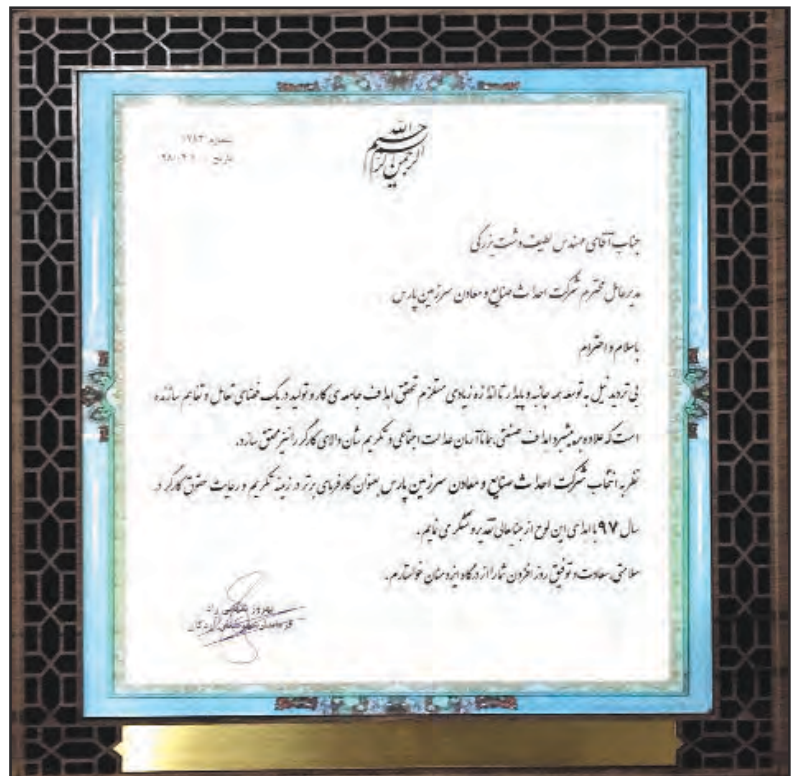 شماره ۱۷۸۳
تاریخ
بسم الله الرحمن الرحیم
جناب آقای مهندس لطیف دشت بزرگی
مدیرعامل محترم شرکت احداث صنایع و معادن سرزمین پارس
باسلام و احترام
بی تردید نیل به توسعه همه جانبه و پایدار تا اندازه زیادی مستلزم تحقق اهداف جامعه ی کار و تولید در یک فضای تعامل و تفاهم سازنده
است که علاوه بر پیشبرد اهداف صنعتی، همانا آرمان عدالت اجتماعی و تکریم شأن والای کارگر را نیز محقق سازد.
نظر به انتخاب شرکت احداث صنایع و معادن سرزمین پارس بعنوان کارفرمای برتر در زمینه تکریم و رعایت حقوق کارگر در
سال ۹۷ با اهدای این لوح از جنابعالی تقدیر و تشکر می نمایم.
سلامتی، سعادت و توفیق روز افزون شما را از درگاه ایزد منان خواستارم.
بهروز